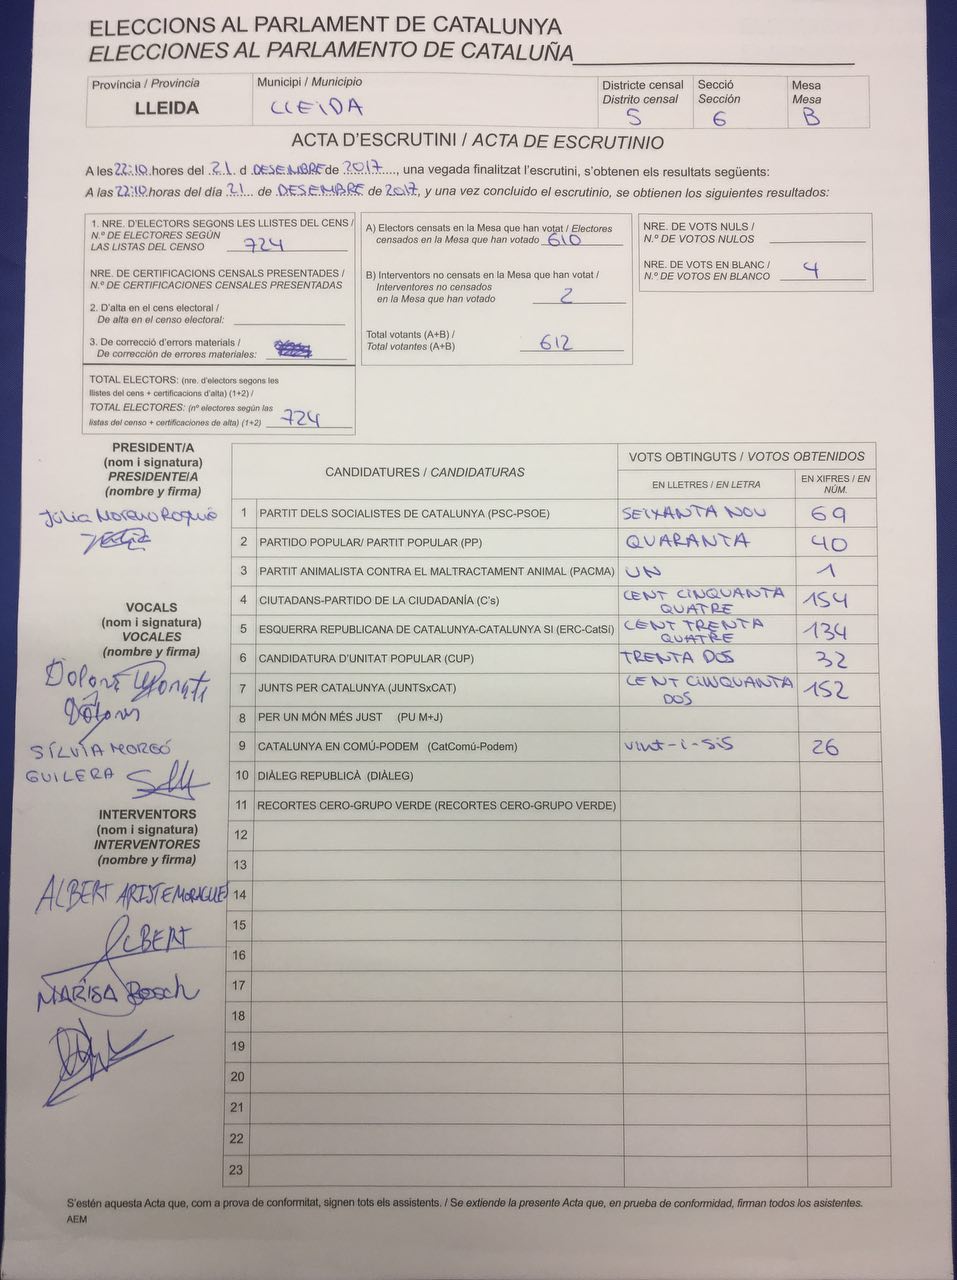 ELECCIONS AL PARLAMENT DE CATALUNYA
ELECCIONES AL PARLAMENTO DE CATALUÑA
Província / Provincia
LLEIDA
Municipi / Municipio
LLEIDA
Districte censal
Distrito censal
5
Secció
Sección
6
Mesa
Mesa
B
ACTA D'ESCRUTINI / ACTA DE ESCRUTINIO
A les 22:10 hores del 21 d DESEMBRE de 2017, una vegada finalitzat l'escrutini, s'obtenen els resultats següents:
A las 22:10 horas del día 21 de DESEMBRE de 2017, y una vez concluido el escrutinio, se obtienen los siguientes resultados:
1. NRE. D'ELECTORS SEGONS LES LLISTES DEL CENS /
N.º DE ELECTORES SEGÚN
LAS LISTAS DEL CENSO 724
NRE. DE CERTIFICACIONS CENSALS PRESENTADES /
N.º DE CERTIFICACIONES CENSALES PRESENTADAS
2. D'alta en el cens electoral /
De alta en el censo electoral:
3. De correcció d'errors materials /
De corrección de errores materiales:
TOTAL ELECTORS: (nre. d'electors segons les
llistes del cens + certificacions d'alta) (1+2) /
TOTAL ELECTORES: (nº electores según las
listas del censo + certificaciones de alta) (1+2) 724
A) Electors censats en la Mesa que han votat / Electores
censados en la Mesa que han votado 610
B) Interventors no censats en la Mesa que han votat /
Interventores no censados
en la Mesa que han votado 2
Total votants (A+B) /
Total votantes (A+B) 612
NRE. DE VOTS NULS /
N.º DE VOTOS NULOS
NRE. DE VOTS EN BLANC /
N.º DE VOTOS EN BLANCO 4
PRESIDENT/A
(nom i signatura)
PRESIDENTE/A
(nombre y firma)
Júlia Moreno Roqué
VOCALS
(nom i signatura)
VOCALES
(nombre y firma)
Dolors
Dolors
SÍLVIA MORGÓ
GUILERA
INTERVENTORS
(nom i signatura)
INTERVENTORES
(nombre y firma)
ALBERT ARISTE MORAGUES
ALBERT
MARISA Bosch
CANDIDATURES / CANDIDATURAS
VOTS OBTINGUTS / VOTOS OBTENIDOS
EN LLETRES / EN LETRA
EN XIFRES / EN
NÚM.
1 PARTIT DELS SOCIALISTES DE CATALUNYA (PSC-PSOE) SEIXANTA NOU 69
2 PARTIDO POPULAR/ PARTIT POPULAR (PP) QUARANTA 40
3 PARTIT ANIMALISTA CONTRA EL MALTRACTAMENT ANIMAL (PACMA) UN 1
4 CIUTADANS-PARTIDO DE LA CIUDADANÍA (C's) CENT CINQUANTA QUATRE 154
5 ESQUERRA REPUBLICANA DE CATALUNYA-CATALUNYA SI (ERC-CatSí) CENT TRENTA QUATRE 134
6 CANDIDATURA D'UNITAT POPULAR (CUP) TRENTA DOS 32
7 JUNTS PER CATALUNYA (JUNTSxCAT) CENT CINQUANTA DOS 152
8 PER UN MÓN MÉS JUST (PU M+J)
9 CATALUNYA EN COMÚ-PODEM (CatComú-Podem) vint-i-sis 26
10 DIÀLEG REPUBLICÀ (DIÀLEG)
11 RECORTES CERO-GRUPO VERDE (RECORTES CERO-GRUPO VERDE)
12
13
14
15
16
17
18
19
20
21
22
23
S'estén aquesta Acta que, com a prova de conformitat, signen tots els assistents. / Se extiende la presente Acta que, en prueba de conformidad, firman todos los asistentes.
AEM